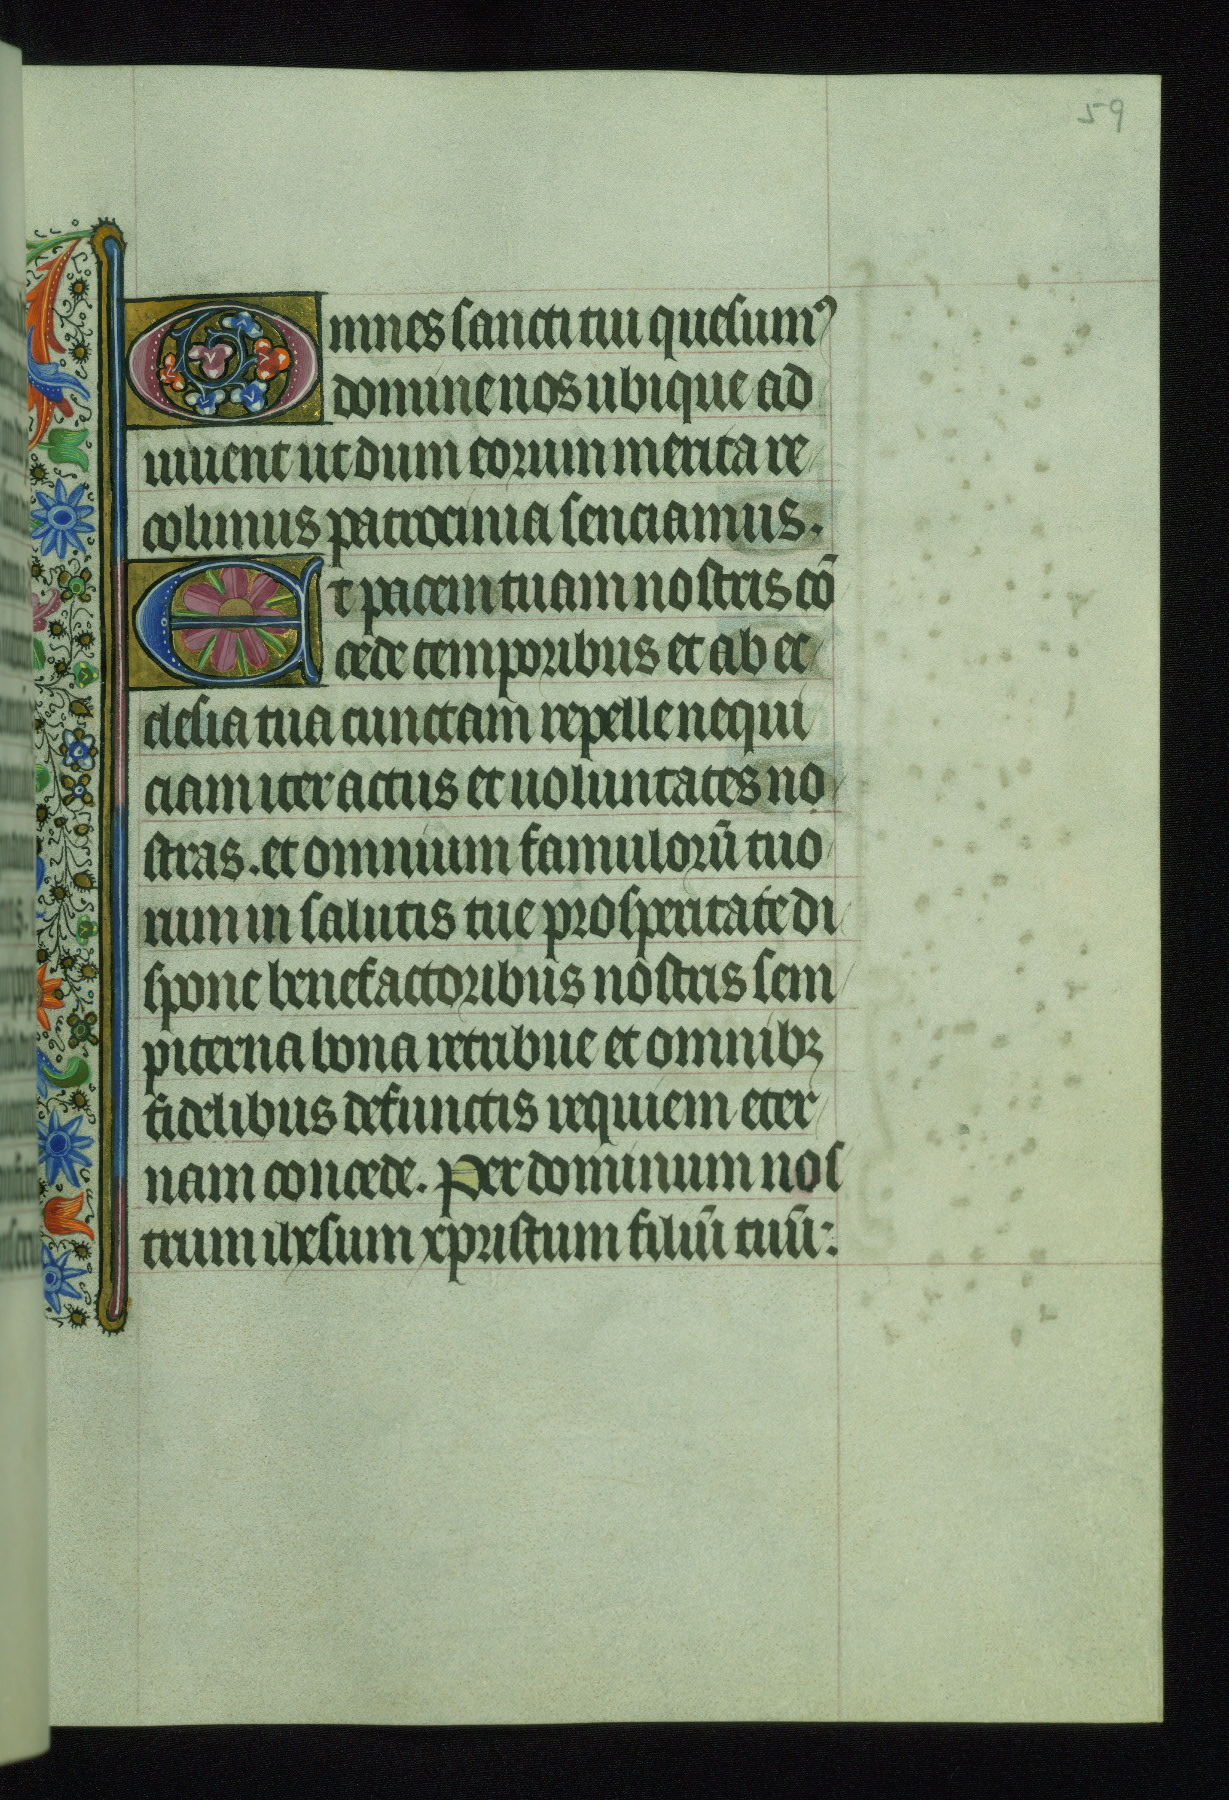 59
Omnes sancti tui quesumꝰ
domine nos ubique ad
iuuent ut dum eorum merita re
colimus patrocinia senciamus.
Et pacem tuam nostris cō
cede temporibus et ab ec
clesia tua cunctam repelle nequi
ciam iter actus et uoluntates no
stras. et omnium famulorū tuo
rum in salutis tue prosperitate di
spone benefactoribus nostris sem
piterna bona retribue et omnibꝫ
fidelibus defunctis requiem eter
nam concede. Per dominum nos
trum ihesum xpristum filiū tuū: